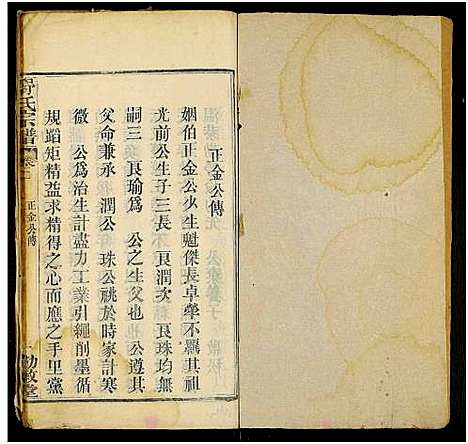 正金公傳
姻伯正金公少生魁傑長卓犖不羈其祖
光前公生子三長 良潤次 良珠均無
嗣三 良瑜爲 公之生父也 公遵其
父命兼承 潤公 珠公祧於時家計寒
微 公爲治生計盡力工業引繩削墨循
規蹈矩精益求精得之心而應之手里黨
氏宗譜
正金公傳
敦堂